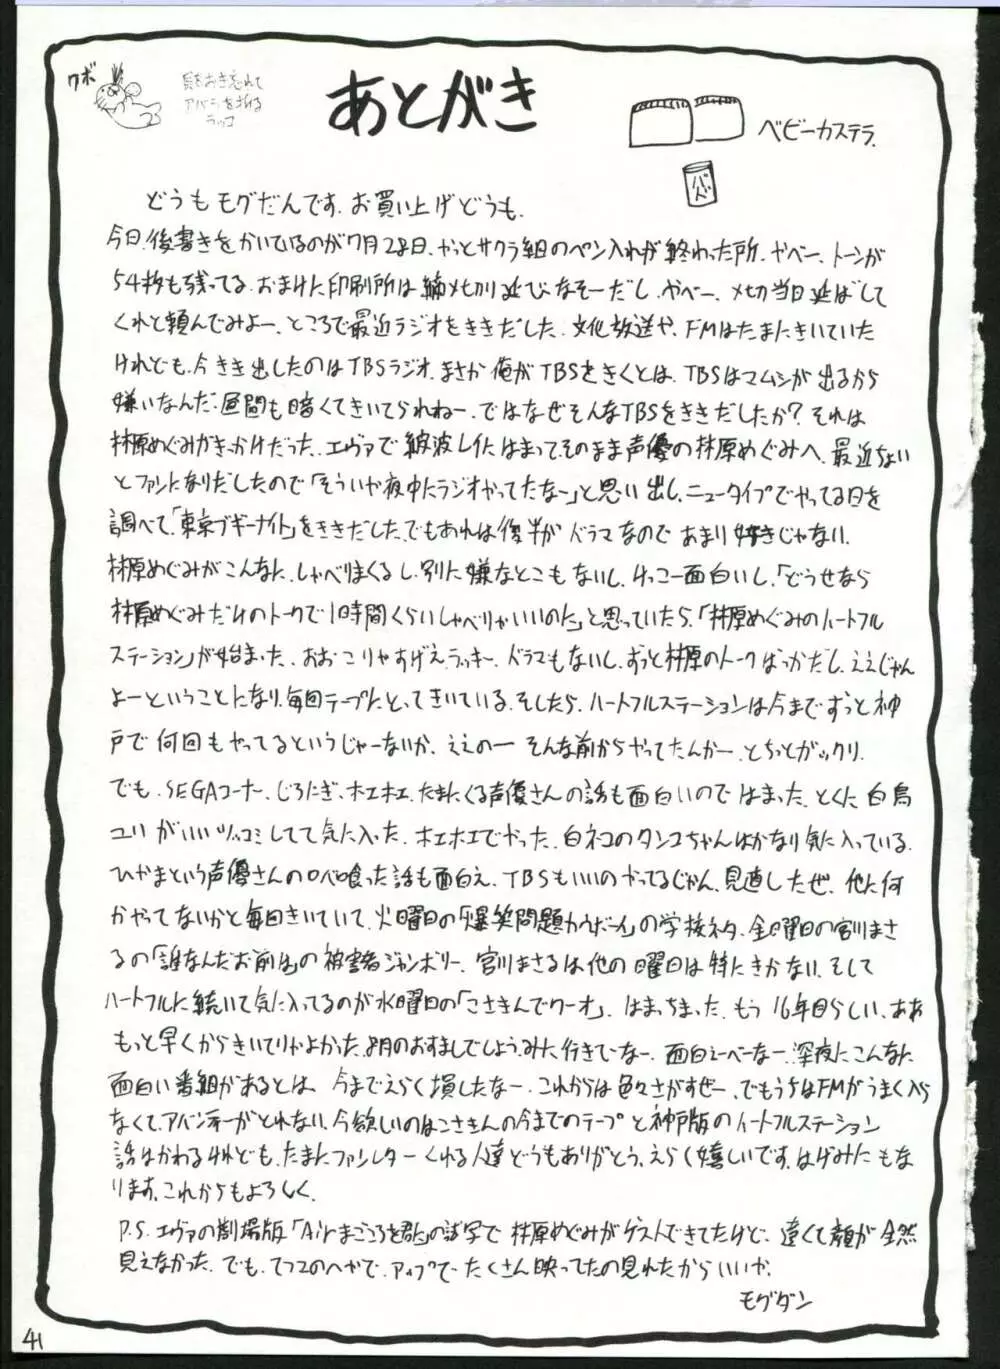 ワボ
貝をおき忘れて
アバラを折る
ラッコ
あとがき
ベビーカステラ.
どうもモグだんです.お買い上げどうも.
今日.後書きをかいているのが7月28日.やっとサクラ組のペン入れが終わった所.やべー.トーンが
54枚も残ってる.おまけに印刷所は締メキリ延びなそーだし.やべー.メ切当日延ばして
くれと頼んでみよー.ところで最近ラジオをききだした.文化放送や.FMはたまにきいていた
けれども.今きき出したのはTBSラジオ.まさか俺がTBSをきくとは.TBSはマムシが出るから
嫌いなんだ.昼間も暗くてきいてられねー.ではなぜそんなTBSをききだしたか?それは
林原めぐみがきっかけだった.エヴァで綾波レイにはまって.そのまま声優の林原めぐみへ.最近ちょい
とファンになりだしたので「そういや夜中にラジオやってたなー」と思い出し.ニュータイプでやってる日を
調べて.「東京ブギーナイト」をききだした.でもあれは後半がドラマなのであまり好きじゃない.
林原めぐみがこんなに.しゃべりまくるし.別に嫌なとこもないし.けっこー面白いし.「どうせなら
林原めぐみだけのトークで1時間くらいしゃべりゃいいのに」と思っていたら.「林原めぐみのハートフル
ステーション」が始まった.おおこりゃすげえラッキー.ドラマもないし.ずっと林原のトークばっかだし.ええじゃん
よーということになり.毎回テープにとってきいている.そしたら.ハートフルステーションは今までずっと神
戸で何回もやってるというじゃーないか.ええのー そんな前からやってたんかー.とちっとガックリ.
でも.SEGAコーナー.じろにぎ.ホエホエ.たまにくる声優さんの話も面白いのではまった.とくに白鳥
ユリがいいツッコミしてて気に入った.ホエホエでやった.白ネコのタンゴちゃんはかなり気に入っている.
ひやまという声優さんのロベ喰った話も面白え.TBSもいいのやってるじゃん.見直したぜ.他に何
かやってないかと毎日きいていて.火曜日の「爆笑問題カウボーイ」の学校ネタ.金曜日の宮川まさ
るの「誰なんだお前は」の被害者ジャンボリー.宮川まさるは他の曜日は特にきかない.そして
ハートフルに続いて気に入ってるのが水曜日の「こさきんでワーオ」.はまっちまった.もう16年目らしい.ああ
もっと早くからきいてりゃよかった.8月のおすましでしょうみに行きてーなー.面白えーべーなー.深夜にこんなに
面白い番組があるとは.今までえらく損したなー.これからは色々さがすぜー.でもうちはFMがうまく入ら
なくて.アバンティーがとれない.今欲しいのはこさきんの今までのテープと神戸版のハートフルステーション
話はかわるけれども.たまにファンレターくれる人達どうもありがとう.えらく嬉しいです.はげみにもな
ります.これからもよろしく.
P.S.エヴァの劇場版「Airまごころを君に」の試写で林原めぐみがゲストできてたけど.遠くて顔が全然
見えなかった.でも.てつこのへやで.アップでたくさん映ってたの見れたからいいか.
モグダン
41